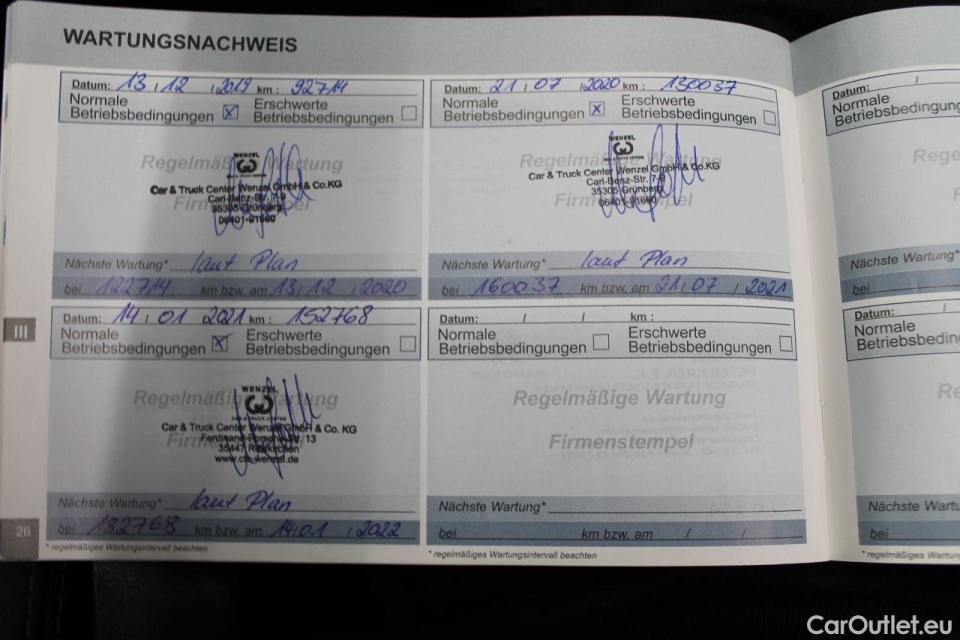 WARTUNGSNACHWEIS
Datum: 13 / 12 / 2019 km : 92714
Normale Betriebsbedingungen ☒ Erschwerte Betriebsbedingungen ☐
Regelmäßige Wartung
WENZEL
Car & Truck Center Wenzel GmbH & Co.KG
Carl-Benz-Str. 7-9
Firmenstempel
35305 Grünberg
06401-91660
Nächste Wartung* laut Plan
bei 122714 km bzw. am 13 / 12 / 2020
Datum: 21 / 07 / 2020 km : 130037
Normale Betriebsbedingungen ☒ Erschwerte Betriebsbedingungen ☐
Regelmäßige Wartung
WENZEL
Car & Truck Center Wenzel GmbH & Co.KG
Carl-Benz-Str. 7-9
35305 Grünberg
Firmenstempel
06401-91660
Nächste Wartung* laut Plan
bei 160037 km bzw. am 21 / 07 / 2021
III
Datum: 14 / 01 / 2021 km : 152768
Normale Betriebsbedingungen ☒ Erschwerte Betriebsbedingungen ☐
WENZEL
Regelmäßige Wartung
CAR & TRUCK CENTER
Car & Truck Center Wenzel GmbH & Co. KG
Firmenstempel
Ferdinand-Porsche-Str. 13
35447 Reiskirchen
www.ctc-wenzel.de
Nächste Wartung* laut Plan
bei 182768 km bzw. am 14 / 01 / 2022
Datum: / / km :
Normale Betriebsbedingungen ☐ Erschwerte Betriebsbedingungen ☐
Regelmäßige Wartung
Firmenstempel
Nächste Wartung*
bei km bzw. am / /
26
* regelmäßiges Wartungsintervall beachten
* regelmäßiges Wartungsintervall beachten
Datum: /
Normale
Betriebsbedingung
Rege
Nächste Wartung*
bei
Datum: /
Normale
Betriebsbedin
Re
Nächste Wartung
bei
* regelmäßiges Wartung
CarOutlet.eu